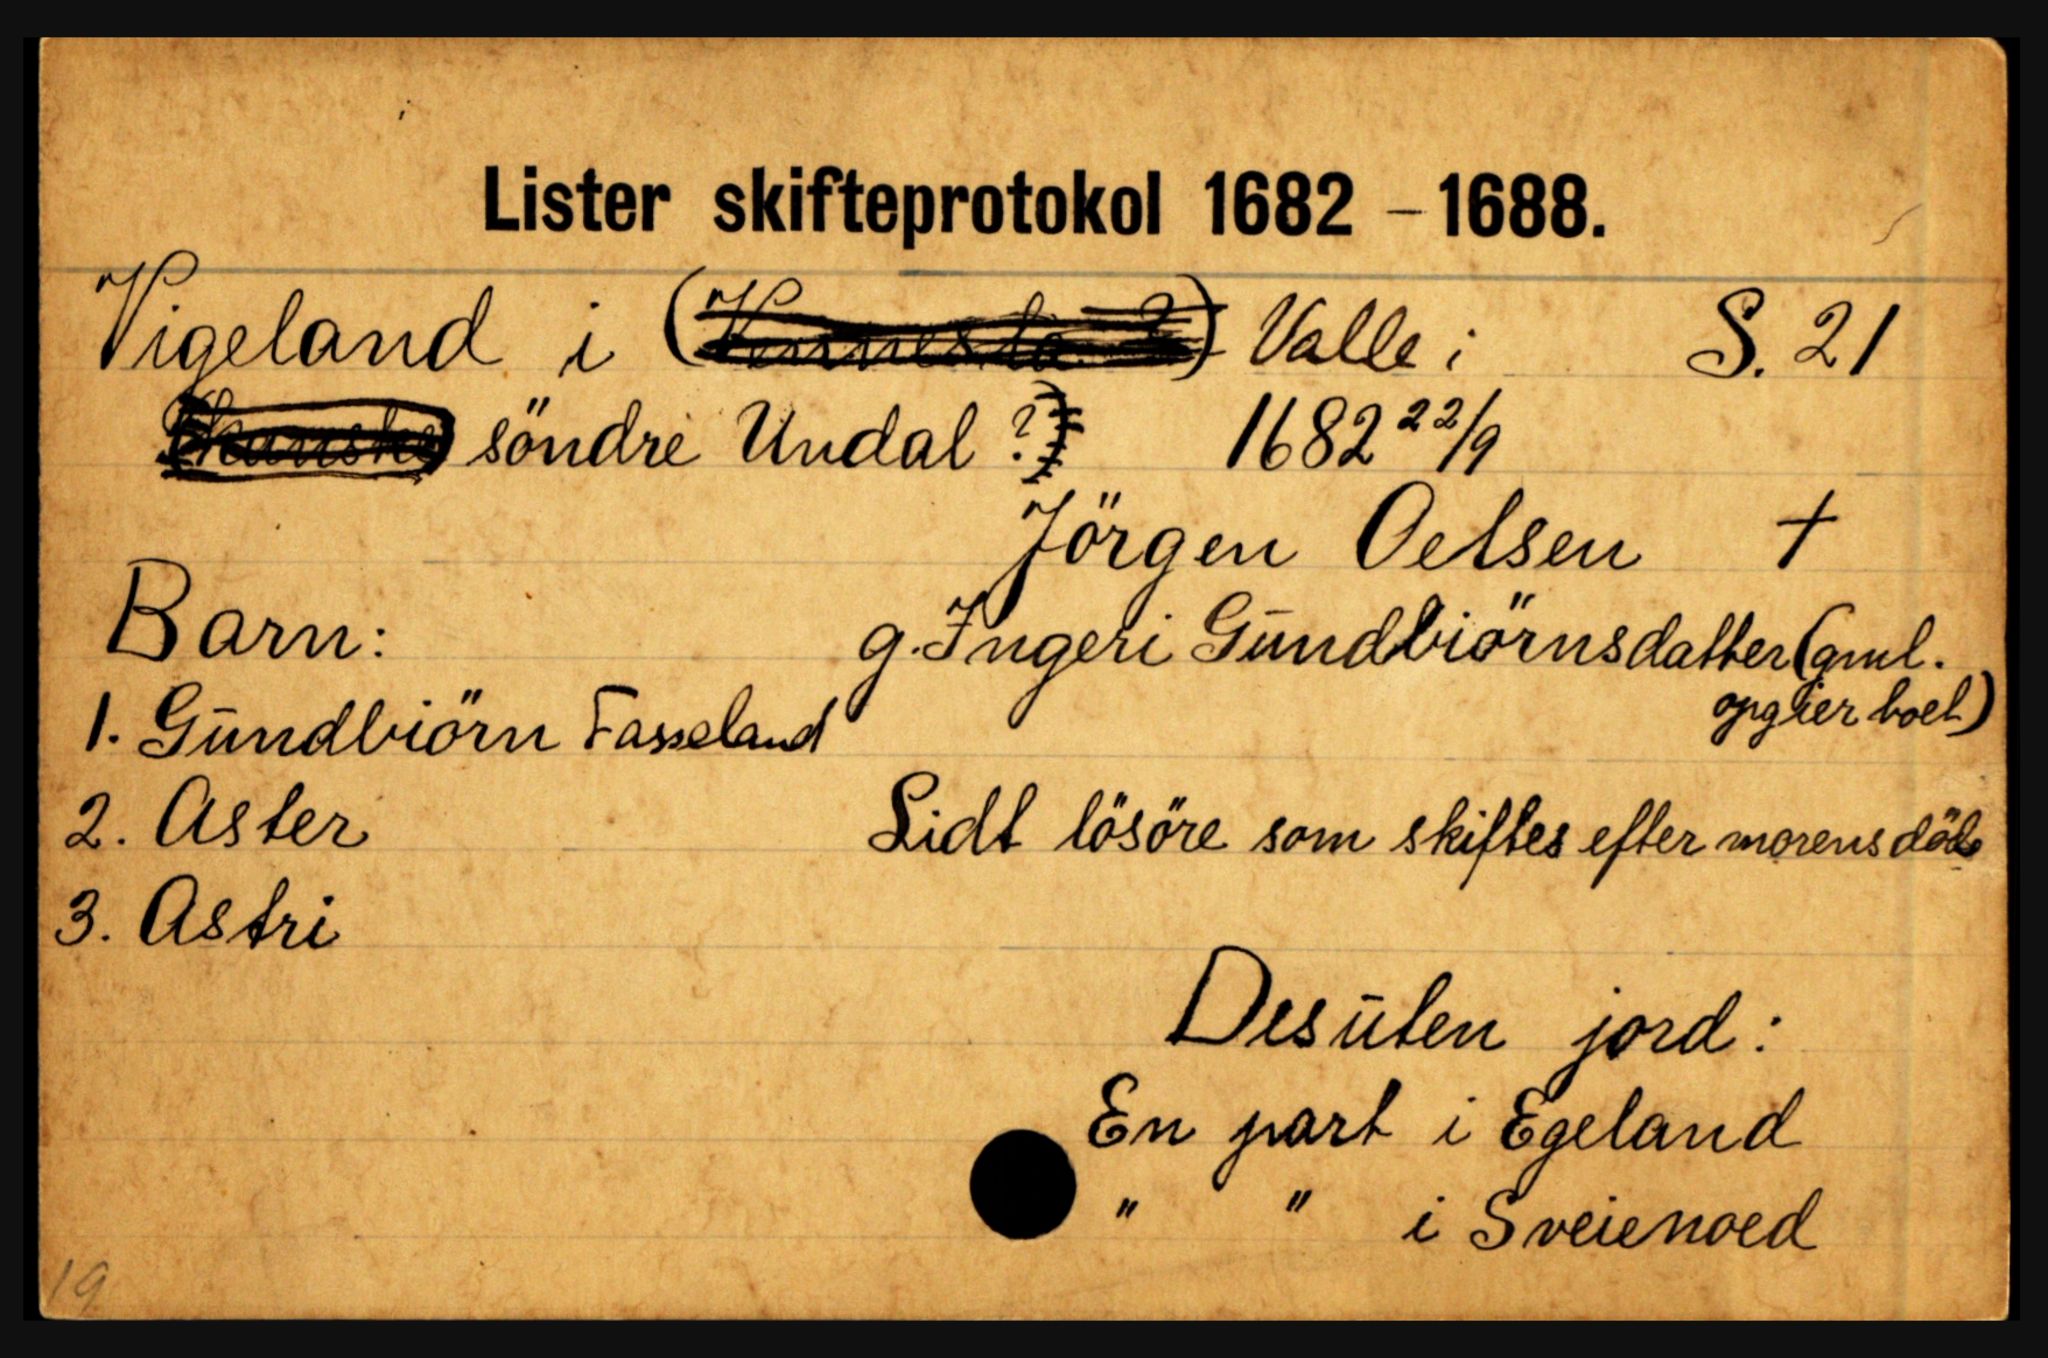 Lister skifteprotokol 1682 – 1688.
Vigeland i () Valle i S. 21
söndre Undal ?) 1682 22/9
Jörgen Oelsen †
Barn: g. Ingeri Gūndbiörnsdatter (gml.
opgier boet)
1. Gūndbiörn Fasseland
2. Aster Lidt lösöre som skiftes efter morens död
3. Astri
Desūten jord:
En part i Egeland
" " i Sveienoed
19